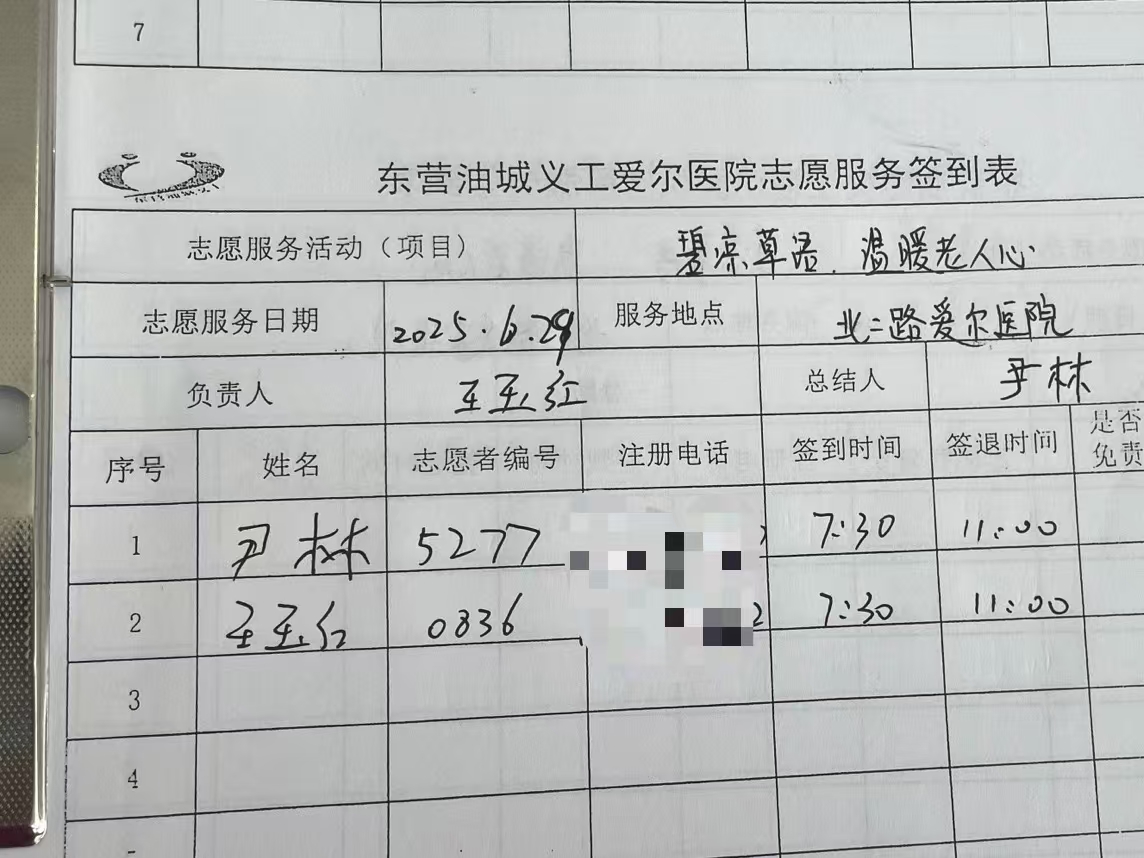 7
东营油城义工爱尔医院志愿服务签到表
志愿服务活动（项目） 碧凉草语．温暖老人心
志愿服务日期 2025.6.29 服务地点 北二路爱尔医院
负责人 王玉红 总结人 尹林
序号 姓名 志愿者编号 注册电话 签到时间 签退时间 是否免责
1 尹林 5277 7:30 11:00
2 王玉红 0836 2 7:30 11:00
3
4